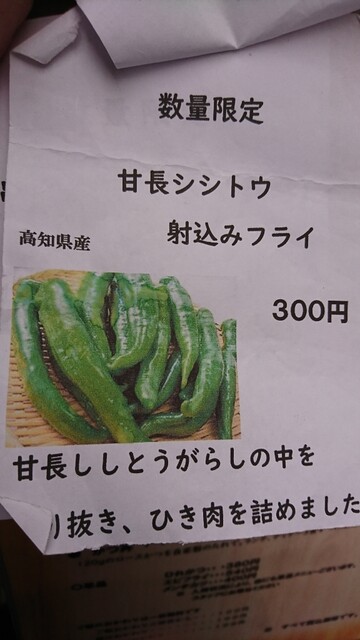 数量限定
甘長シシトウ
高知県産
射込みフライ
300円
甘長ししとうがらしの中を
り抜き、ひき肉を詰めました